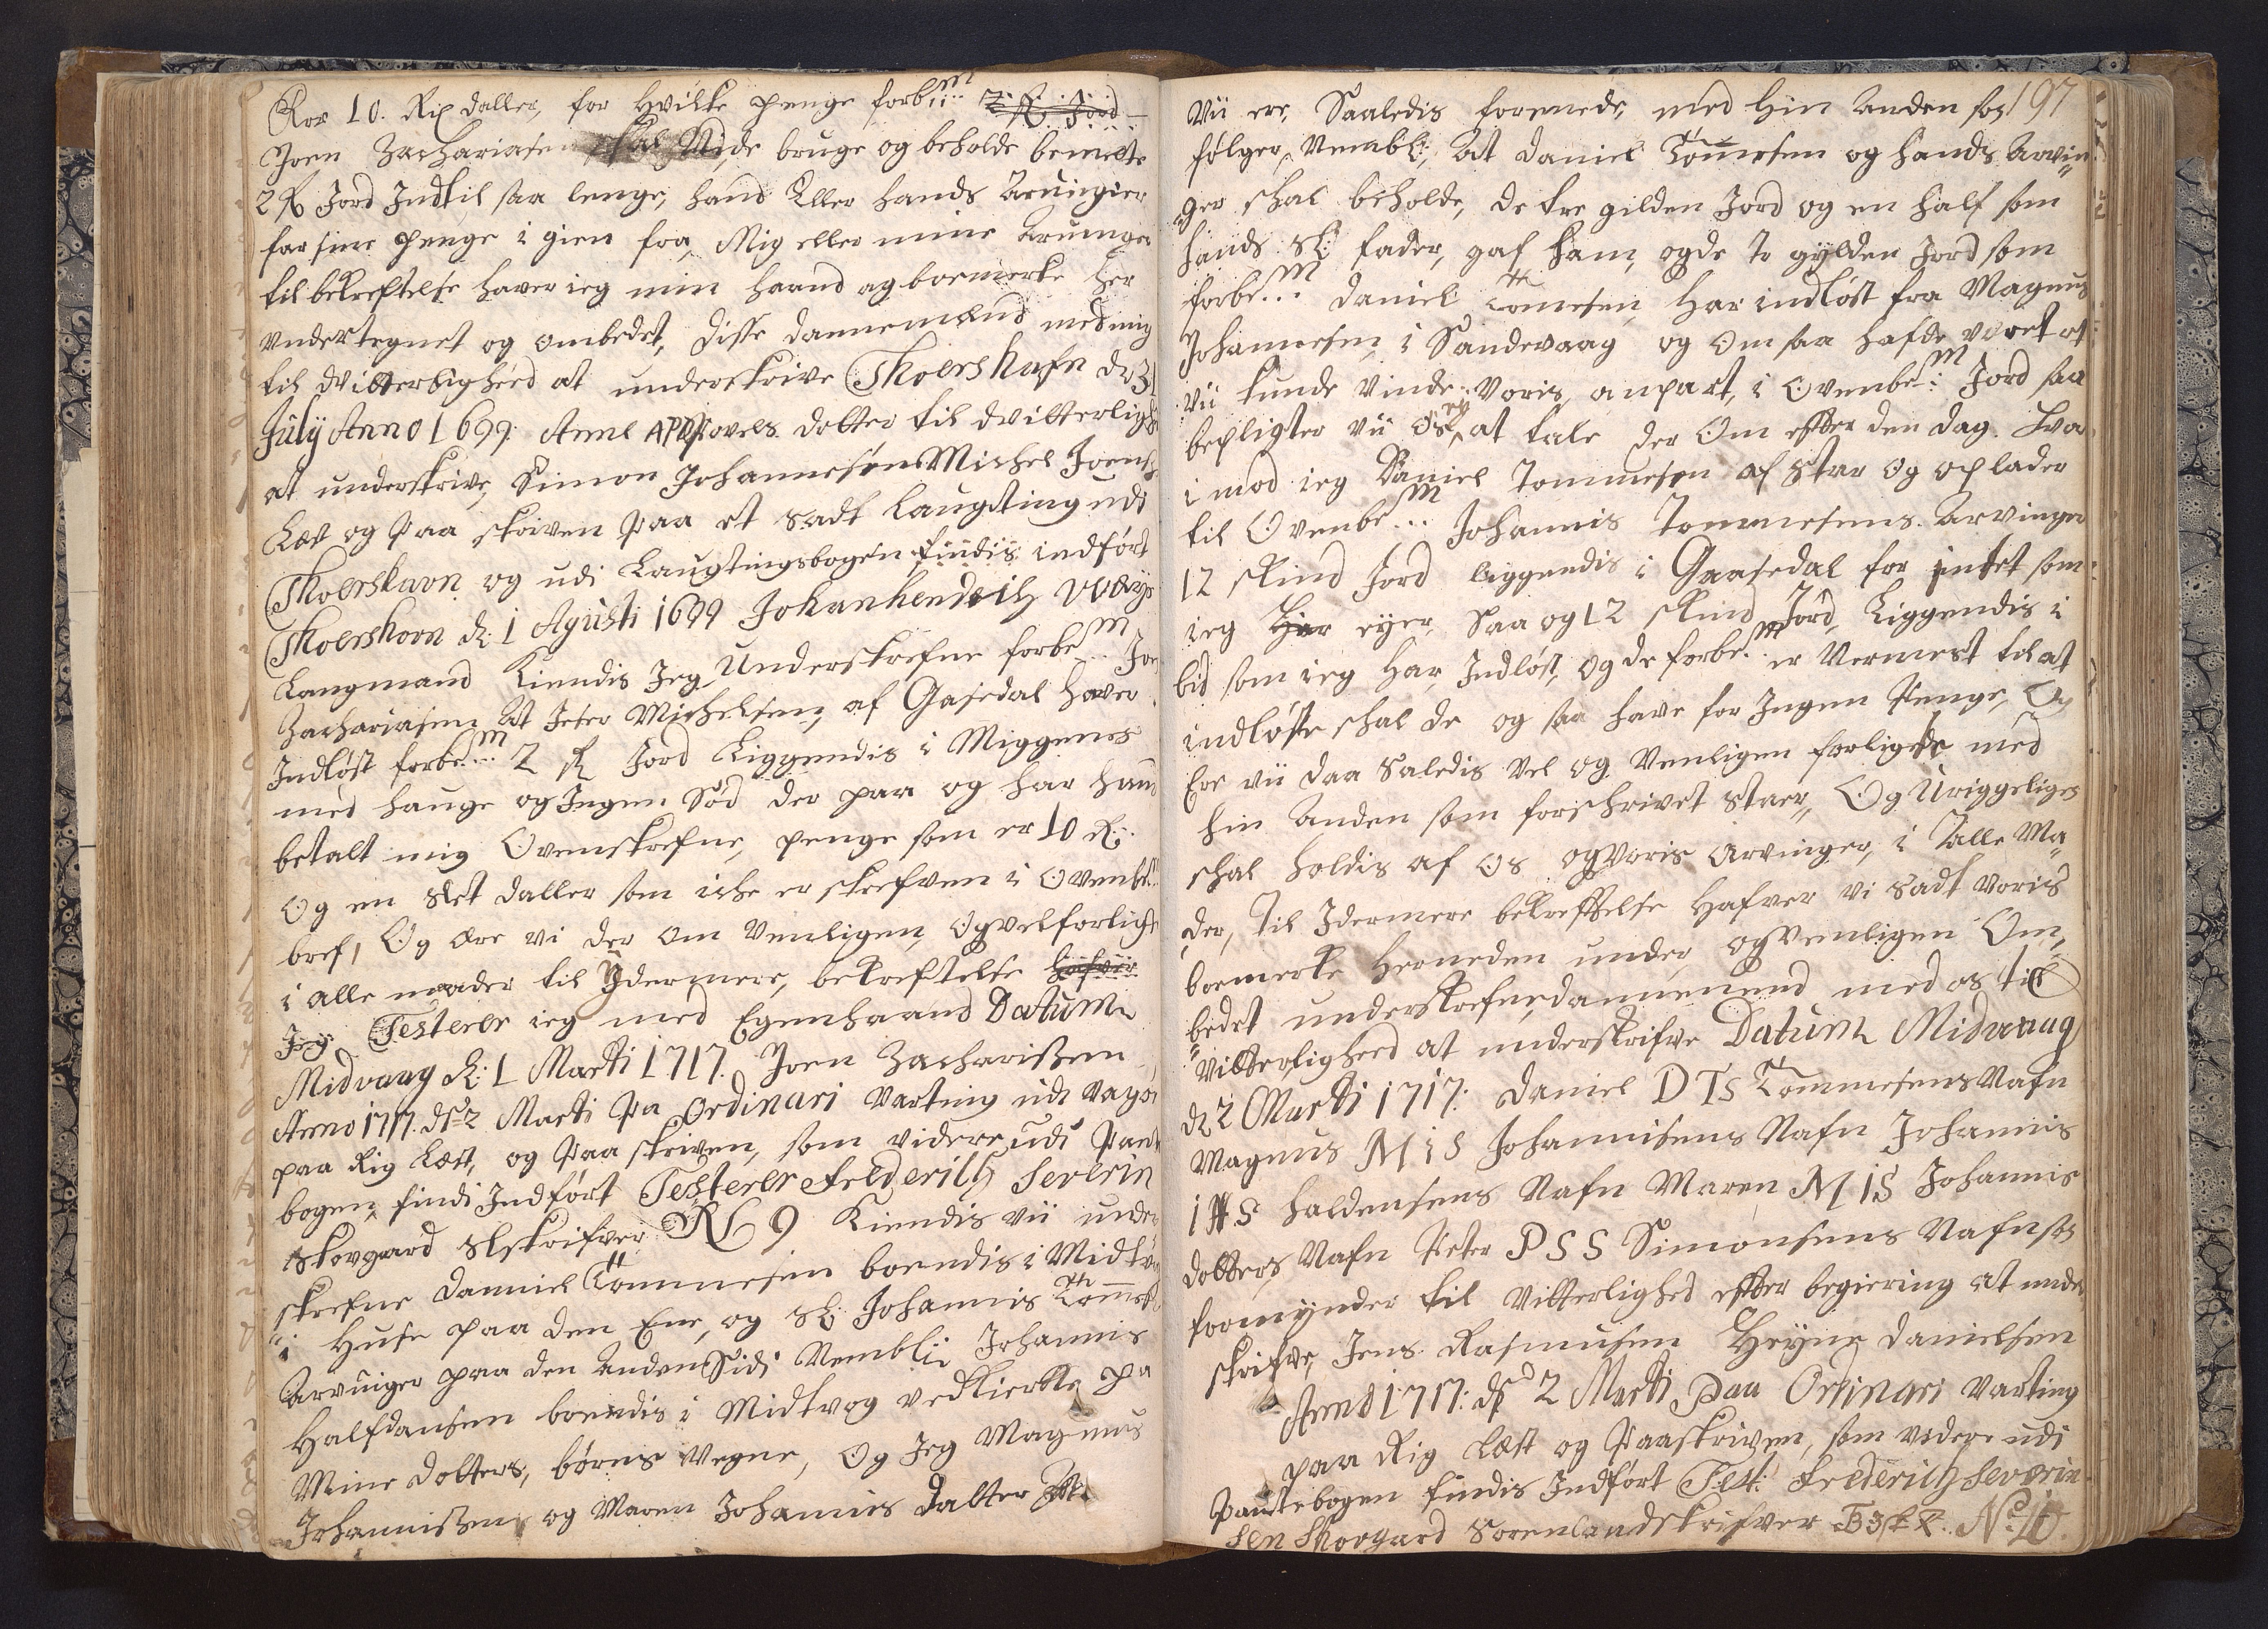 for 10. Rix daller, for Hvilke penge forb:m 2 R Jord
Joen Zachariasen skal Nide bruge og beholde bemelte
2 R Jord Indtil saa lenge, hand Eller hands Aruinger
far sine penge i gien fra, Mig eller mine Aruinger
til bekreftelse haver ieg min haand ag boemerke her
undertegnet og ombedet, disse dannemænd med mig
til dvitterlighed at underskrive Thoershafn d. 31
July Anno 1699. Anne APD Povels datter til dvitterlighed
at underskrive, Simon Johannesøn Michel Joens
Læst og Paa skriven Paa et Sadt Laugting udi
Thoershavn og udi Laugtingsbogen findis indført
Thoershavn d: 1 Agusti 1699 Johan Hendrich Weyhe
Laugmand Kiendis Jeg Underskrefne forbem Joen
Zachariasen At Peter Michelsen, af Gasedal haver
Indløst forbem 2 R Jord Liggendis i Miggenes
med hauge og Ingen Sød der paa og har hand
betalt mig Ovenskrefne, penge som er 10 R.
Og en Slet daller som iche er skrefven i Ovenbe
bref, Og Ere vi der om Venligen, Og vel forligte
i alle maader til Ydermere, bekreftelse hafver
Jeg. Testerer ieg med Egenhaand Datum
Midvaag d: 1 Marti 1717. Joen Zacharissen
Anno 1717. d. 2 Marti Paa Ordinari Varting udi Vagø
paa Rig Læst, og Paa skriven, som videre udi Pante
bogen findi Indført Testerer Frederich Severin
Skovgaard Slskrifver No 9 Kiendis vii under
skrefne Daniel Tommesen boendis i Midtvog
i Huse paa den Ene, og Sl: Johannis Tommes
Arvinger paa den anden Sidi Nembli Johannis
Halfdansen boendis i Midtvog ved Kierke pa
Mine dotters, børns Vegne, Og Jeg Magnus
Johannissen og Maren Johannis Datter
197
Vii ere, Saaledis forenede, med hin Anden som
følger, Nembl:, At Daniel Tommesen og hands Arvin
ger skal beholde, de tre gilden Jord og en half som
hands Sl: fader, gaf ham, og de to gylden Jord som
forbem Daniel Tomesen Har indløst fra Magnus
Johannesen i Sandevaag og Om saa hafde været at
vii kunde vinde Voris, anpart, i Ovenbem Jord saa
bepligter vii Os, ey at tale der Om efter den dag. Hvor
i mod ieg Daniel Tommesen af Star og oplader
til Ovenbem Johannis Tommesens Arvinger
12 skind Jord liggendis i Gaasedal for intet som
ieg Har eyer, Saa og 12 skind Jord, Liggendis i
bid som ieg Har, Indløst, og de forbem er Vermest til at
indløste skal de og saa have for Ingen Penge, Og
Ere vii daa Saledis Vel og Venligen forligede med
hin Anden som forschrivet Staer, Og Uriggeliges
skal holdis af Os og voris Arvinger, i Alle Ma
der, til Idermere bekreftelse Hafver vi Sadt Voris
boemerke Herneden under og Venligen Om
bedet underskrefne, dannemend med os til
Vitterlighed at underskrifve Datum Midvaag
d 2 Marti 1717: Daniel DTS Tommesens Nafn
Magnus MIS Johannisens Nafn Johannis
IHS Haldensens Nafn Maren MIS Johannis
dotters Nafn Peter PSS Simonsens Nafn som
formynder til Vitterlighed efter begiering at under
skrifve, Jens Rasmusen Heyne Danielsen
Anno 1717: d. 2 Marti Paa Ordinari Varting
paa Rig Læst og Paaskriven, som videre udi
Pantebogen findis Indført Test: Frederich Severin
sen Skovgard Sorenlandskrifver No 10